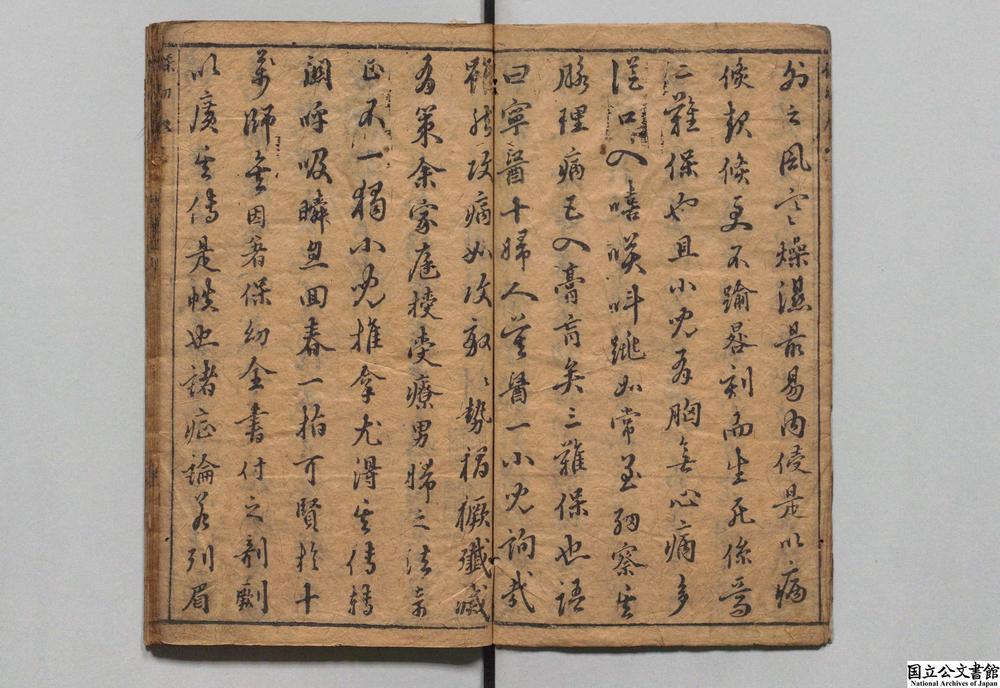 外之風寒燥濕最易內侵是以病
倏熱倏更不踰晷刻而生死係焉
二難保也且小兒有胸無心病多
從口入嘻咲呌跳如常至細察其
脉理病已入膏肓矣三難保也語
曰寧醫十婦人莫醫一小兒詢哉
雖然攻病如攻敵〻勢猖獗殲滅
為策余家庭授受療男婦之法奇
正不一獨小兒推拿尤得其傳轉
關呼吸瞬息回春一指可賢於十
萬師無因著保幼全書付之剞劂
以廣其傳是帙也諸症論名列眉
国立公文書館
National Archives of Japan